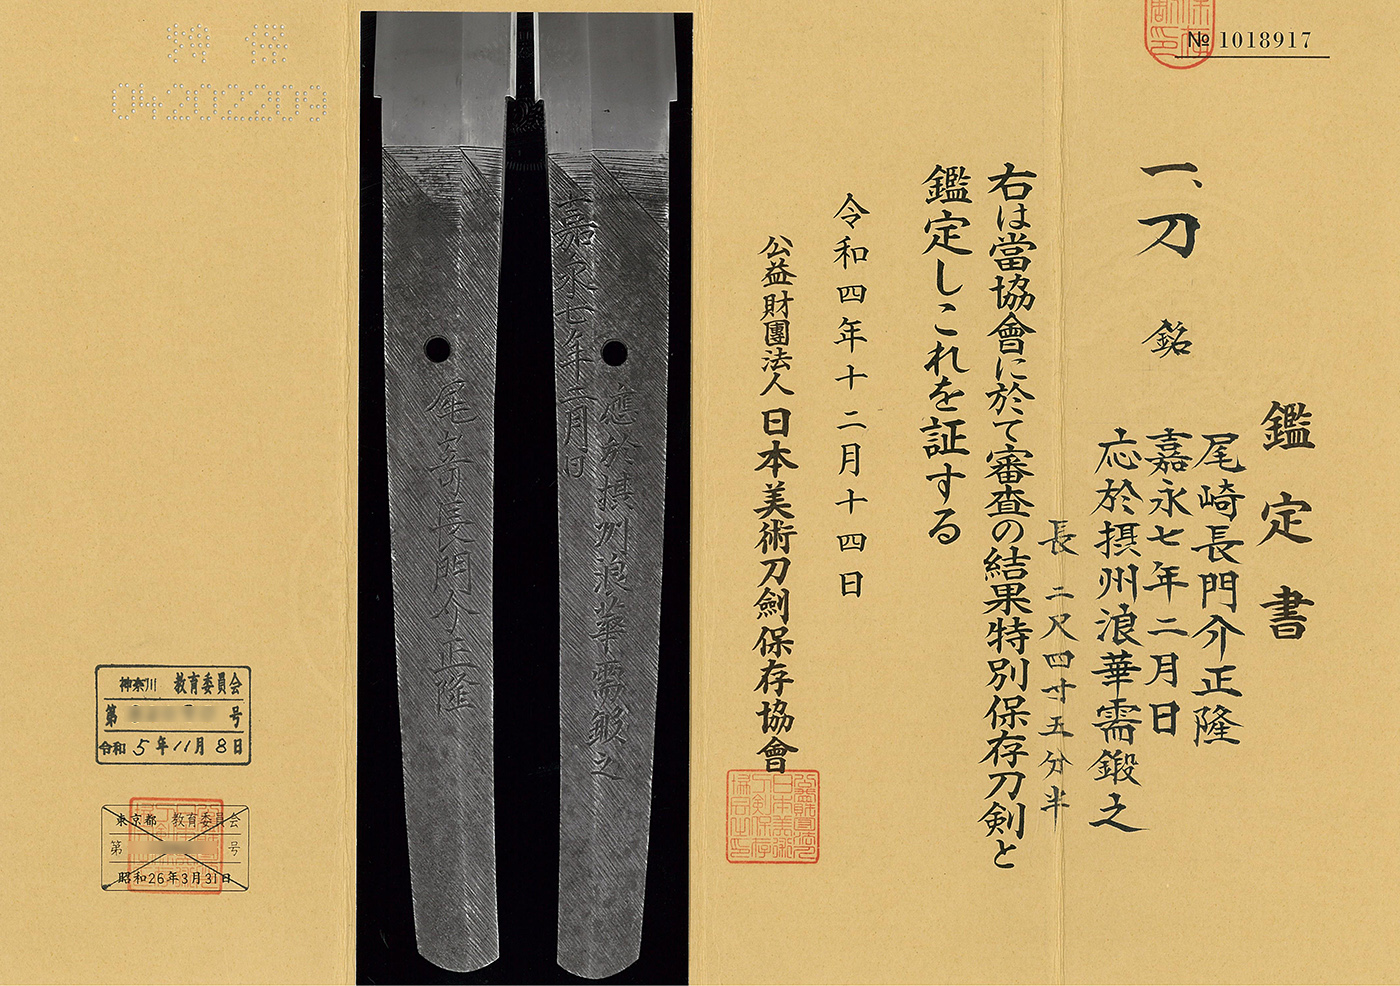 № 1018917
鑑定書
一、刀 銘
尾崎長門介正隆
嘉永七年二月日
応於摂州浪華需鍛之
長 二尺四寸五分半
右は當協會に於て審査の結果特別保存刀剣と
鑑定しこれを証する
令和四年十二月十四日
公益財團法人日本美術刀劍保存協會
嘉永七年二月日
應於摂州浪華需鍛之
尾崎長門介正隆
04202209
神奈川 教育委員会
第 号
令和5年11月8日
東京都 教育委員会
第 号
昭和26年3月31日